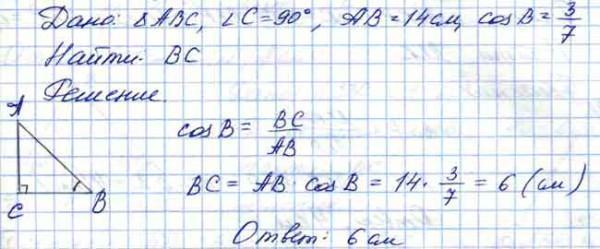 Дано: ΔABC, ∠C=90°, AB=14см, cosB=3/7
Найти: BC
Решение.
A
cosB = BC/AB
BC = AB · cosB = 14 · 3/7 = 6 (см)
C B
Ответ: 6см